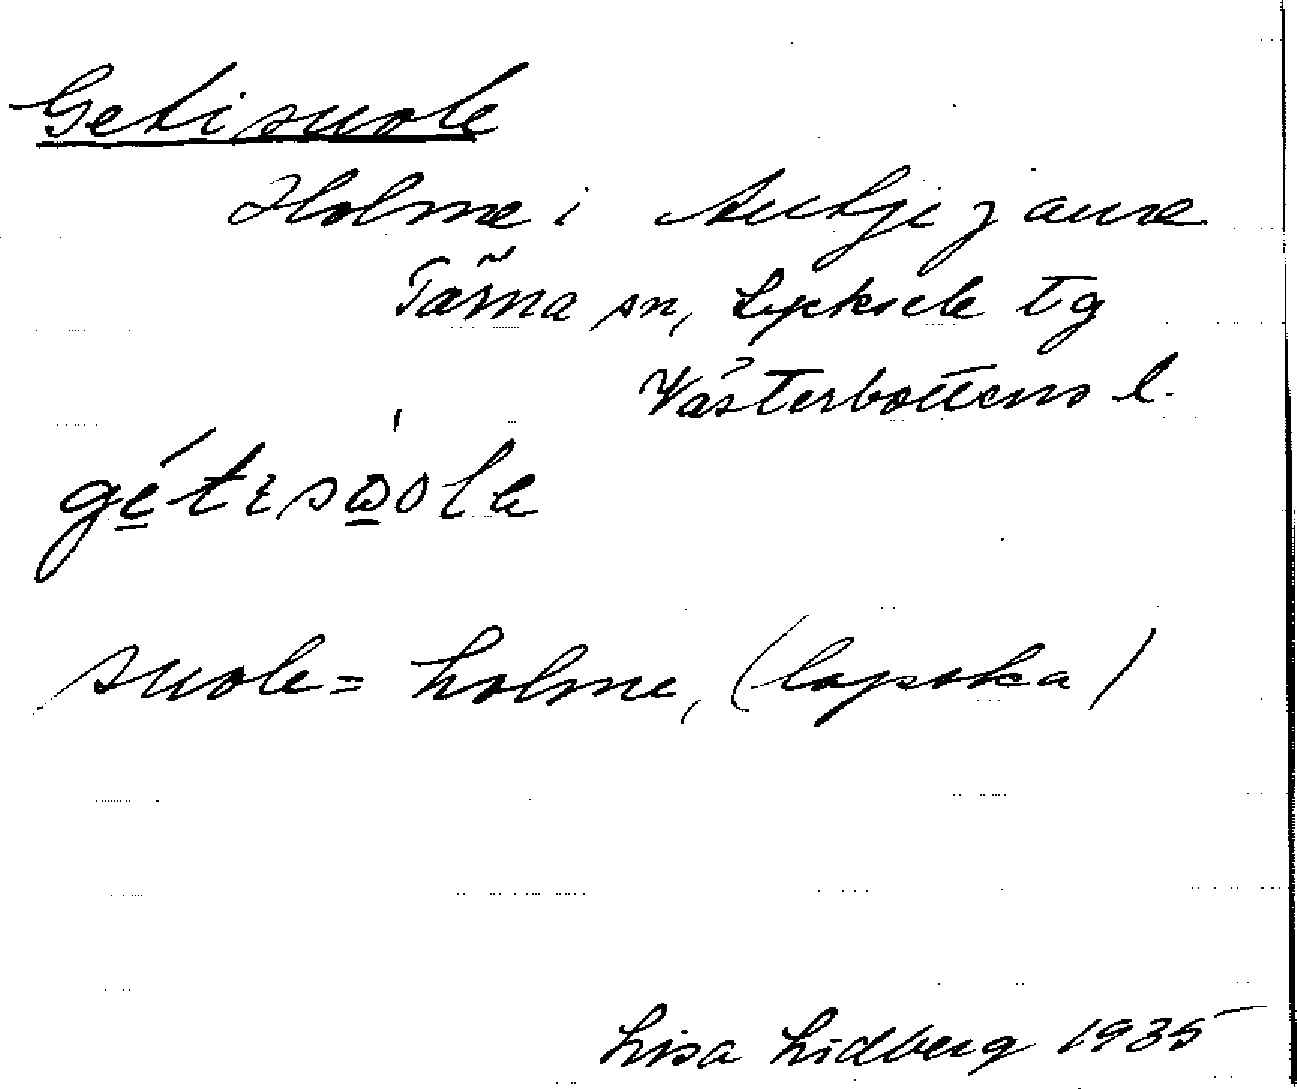 Getisuole
Holme i Autjejaure
Tärna sn, Lycksele tg
Västerbottens l.
suole = holme, (lapska)
Lisa Lidberg 1935